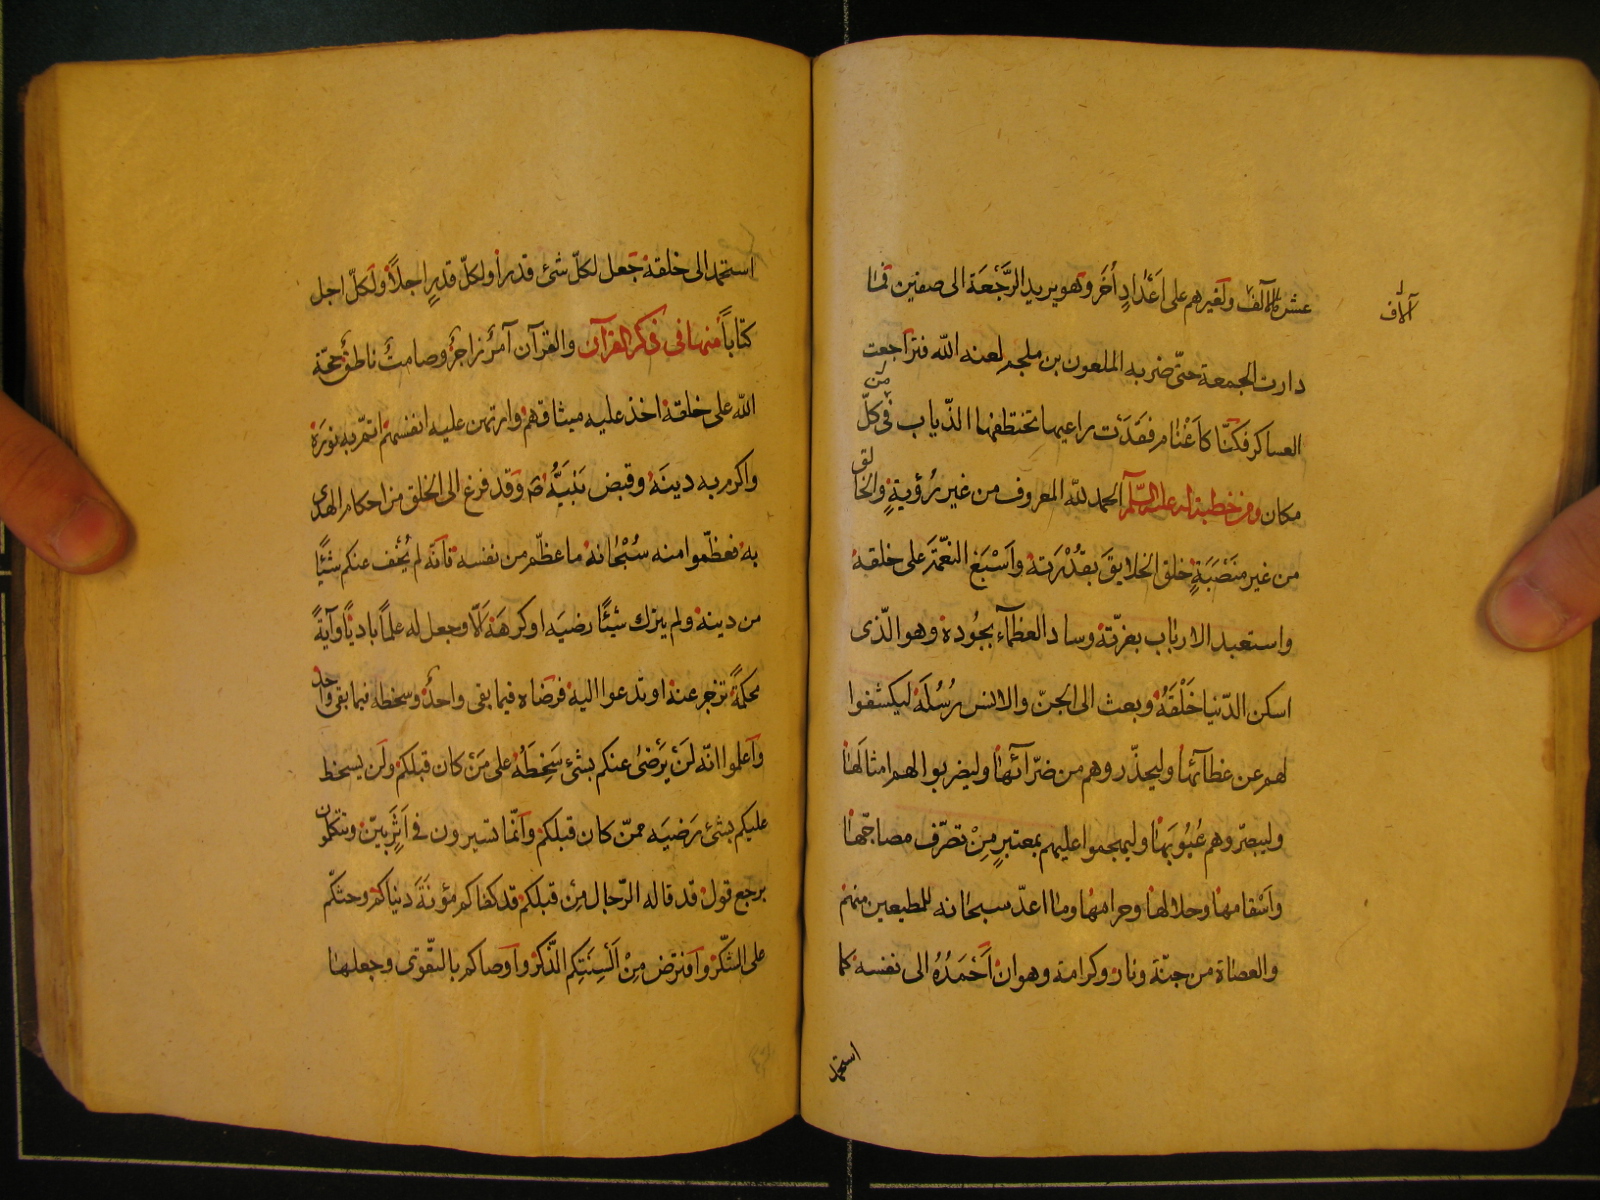 عشرة الآلف ولغيرهم على اَعْدادٍ اُخَر وهو يريد الرَّجْعَة الى صفين فما
آلاف
دارت الجمعة حتّى ضربه الملعون بن ملجم لعنه الله فتراجعت
العساكر فكنّا كاَغْنام فقدَت راعيها تختطفها الذّياب من كلّ
مكان ومن خطبة له عليه السّلم الحمد لله المعروف من غير رُؤيةٍ والخالق
من غير مَنْصَبَةٍ خلق الخلايق بقُدْرَته وَاَسْبَغ النعْمَة على خلقه
واستعبد الارباب بعزّته وساد العظمآء بجُوده وهو الّذى
اسكن الدّنيا خَلْقَهُ وبعث الى الجنّ والانس رُسُلَهُ ليكشفوا
لهم عن غطآئها وليحذّروهم من ضرّآئها وليضربوا لهم امثالَها
وليبصّروهم عُيُوبَها وليهجموا عليهم بمعتبرٍ مِنْ تصرّف مصاحّها
وَاَسْقامها وحلالها وحرامها وما اعدّ سبحانه للمطيعين منهم
والعصاة من جنّة ونار وكرامة وهوان اَحْمَدُهُ الى نفسه كما
استحمد
استحمد الى خلقه جعل لكلّ شئ قدراً ولكلّ قدرٍ اجلاً ولكلّ اجل
كتّاباً منها فى ذكر القرآن والقرآن آمرٌ زاجرٌ وصامتٌ ناطقٌ حجّة
الله على خلقه اخذ عليه ميثاقهم وارتهن عليه انفسهم اتمّ به نورَه
واكرم به دينَه وقبض نَبيَّهُ وَقد فرغ الى الخلق من احكام الهدى
به فعظّموا منه سُبْحانه ما عظّم من نفسه فانّه لم يُخْف عنكم شيئًا
من دينه ولم يترك شيئًا رضيَه او كرهَه اَلّا وجعل له علماً باديًا وآيةً
محكمةً تزجر عنه او تدعوا اليه فرضاه فيما بقى واحدٌ وسخطه فيما بقى واحد
وَاعلموا انّه لَنْ يَرْضىٰ عنكم بشئ سَخِطَهُ على مَنْ كان قبلكم ولَن يسخط
عليكم بشئ رَضيَه ممّن كان قبلكم وانّما تسيرون فى اَثَرٍ بيّن وتتكلّمون
برجع قول قد قاله الرّجال مِن قبلكم قد كفاكم مؤنَةَ دنياكم وحثكّم
على الشّكر وَافترض مِنْ اَلْسِنَتِكم الذّكر وَاَوصاكم بالتقّوىٰ وجعلها